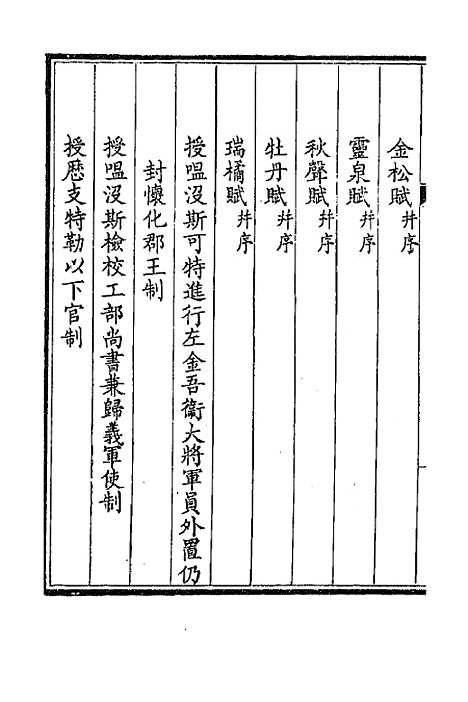 金松賦并序
靈泉賦并序
秋聲賦并序
牡丹賦并序
瑞橘賦并序
授嗢沒斯可特進行左金吾衛大將軍員外置仍
封懷化郡王制
授嗢沒斯檢校工部尚書兼歸義軍使制
授歷支特勒以下官制